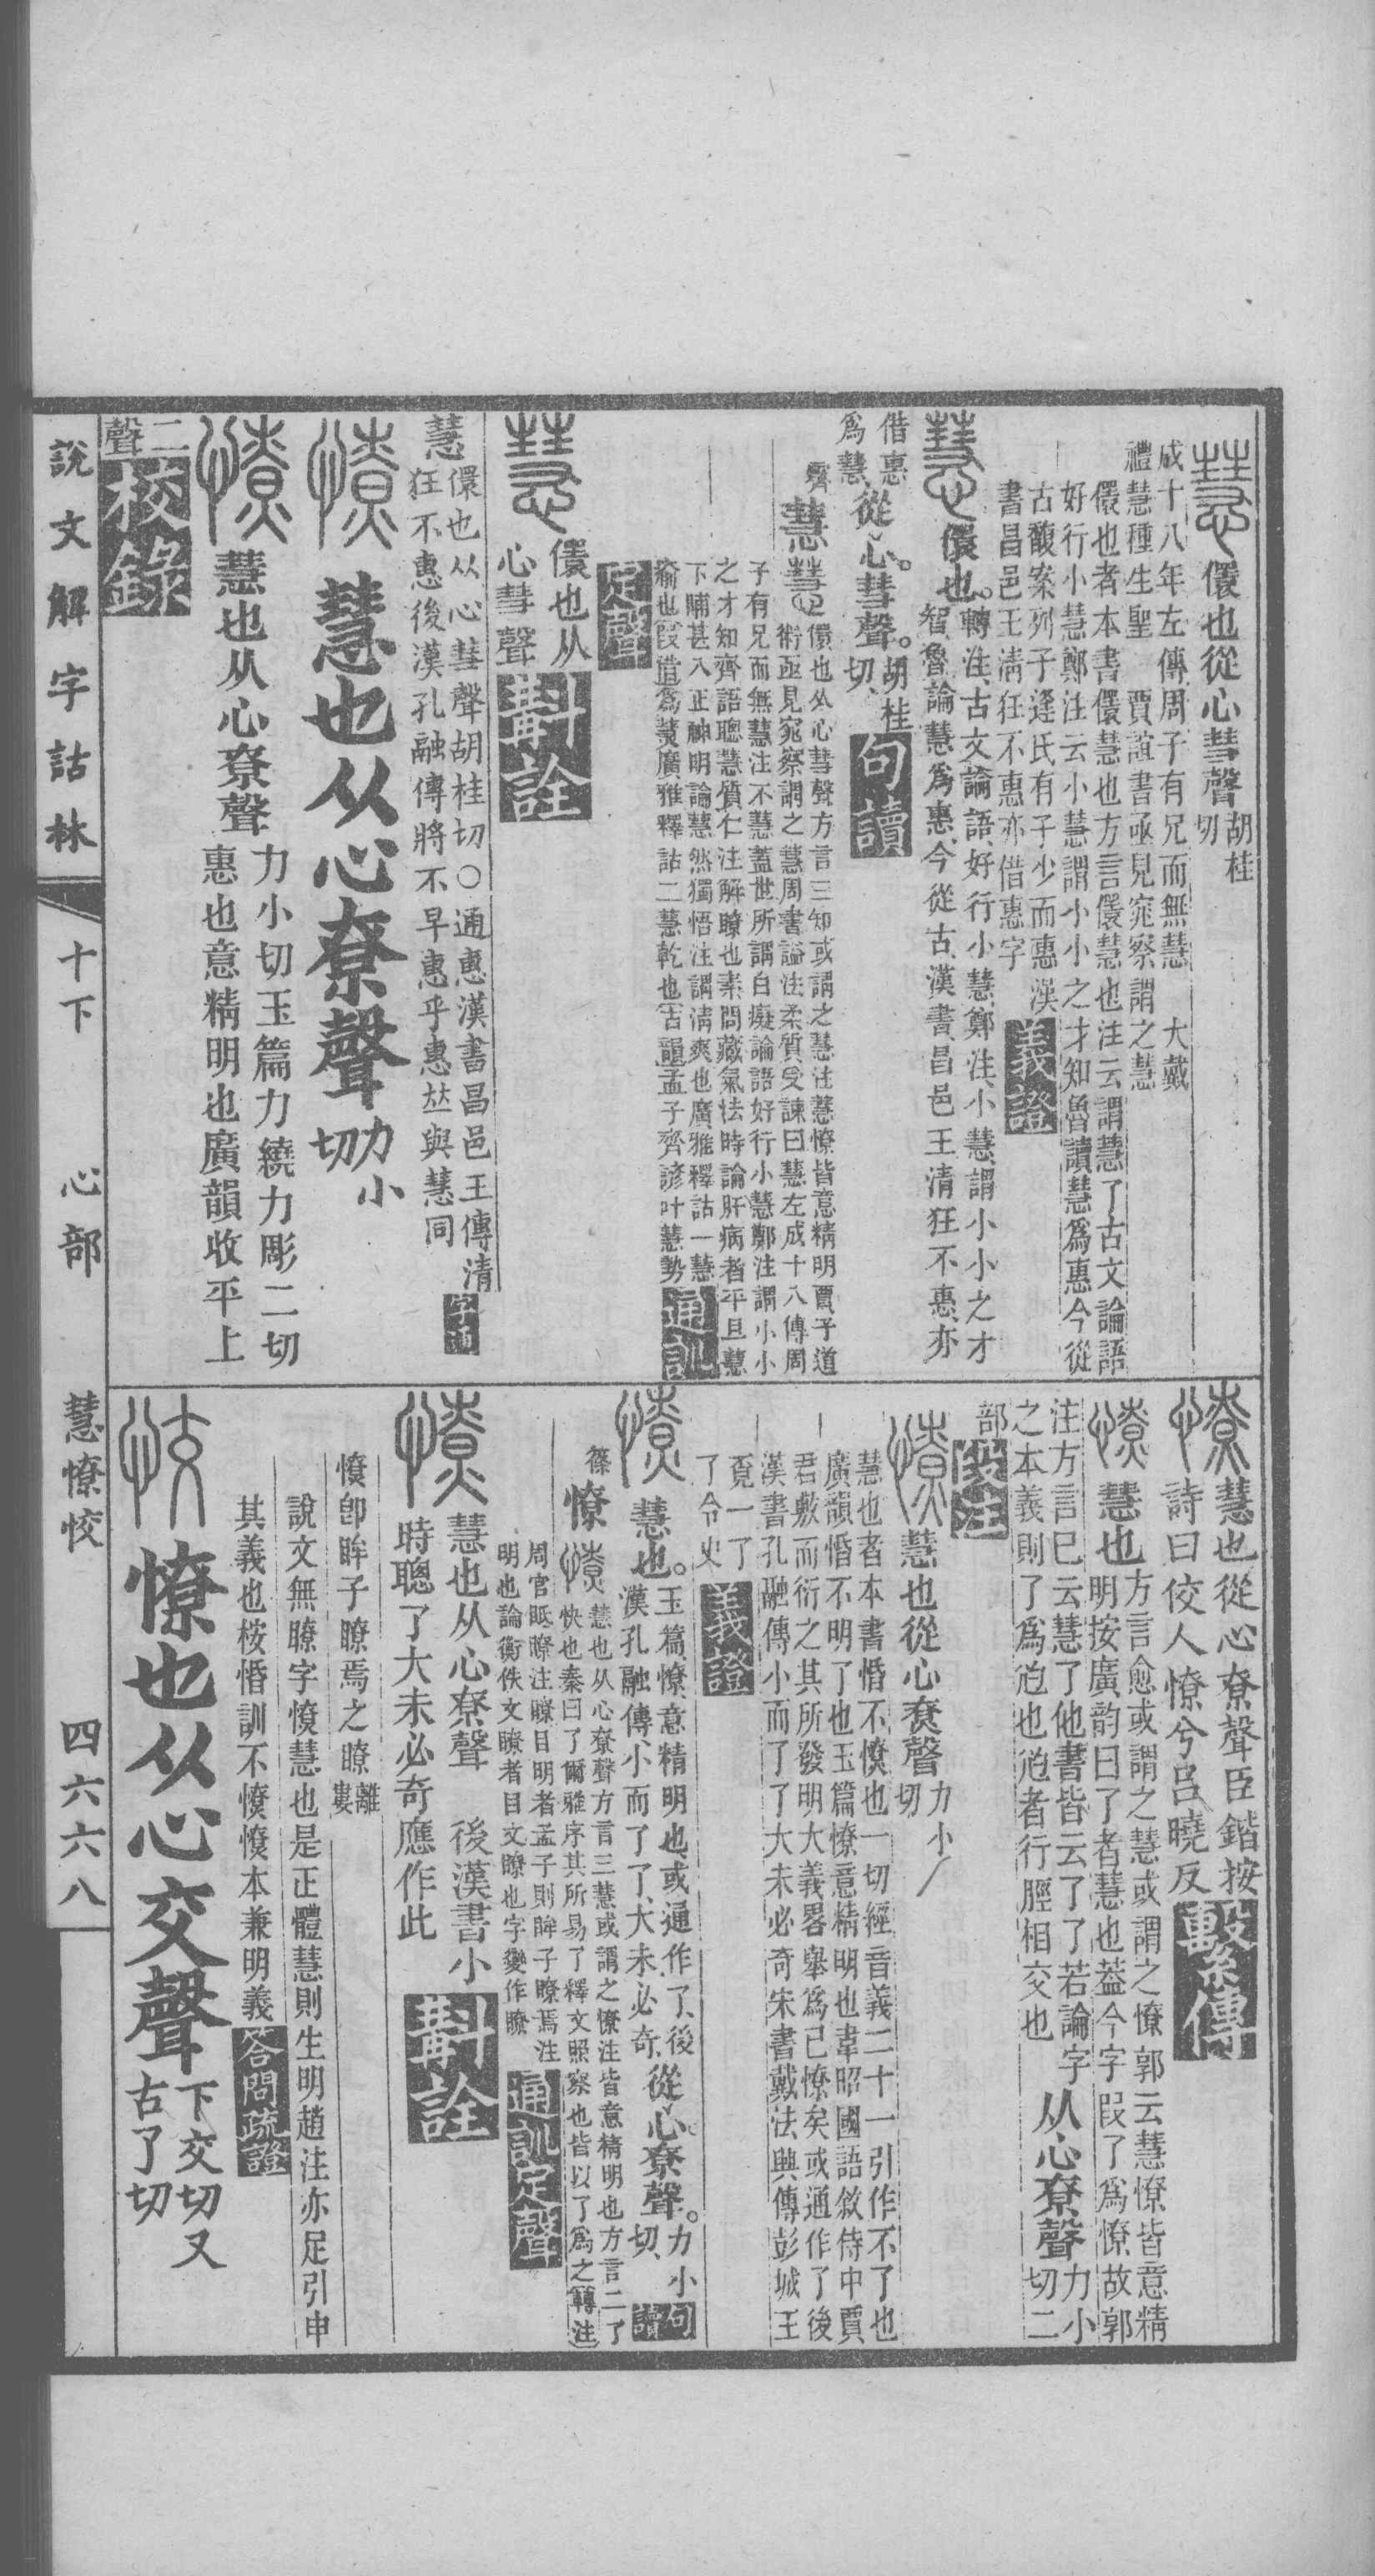 慧 儇也從心彗聲胡桂切
成十八年左傳周子有兄而無慧 大戴
禮慧種生聖 賈誼書亟見窕察謂之慧
儇也者本書儇慧也方言儇慧也注云謂慧了古文論語
好行小慧鄭注云小慧謂小小之才知魯讀慧為惠今從
古馥案列子逢氏有子少而惠漢
書昌邑王清狂不惠亦借惠字
義證
慧 儇也。轉注、古文論語、好行小慧、鄭注、小慧、謂小小之才
智、魯論慧為惠、今從古、漢書、昌邑王清狂不惠、亦
借惠為慧、從心。彗聲。胡桂切、
句讀
霽
慧 慧 儇也从心彗聲方言三知或謂之慧注慧憭皆意精明賈子道
術亟見窕察謂之慧周書諡注柔質受諫曰慧左成十八傳周
子有兄而無慧注不慧蓋世所謂白癡論語好行小慧鄭注謂小小
之才知齊語聰慧質仁注解瞭也素問藏氣法時論肝病者平旦慧
下晡甚入正神明論慧然獨悟注謂清爽也廣雅釋詁一慧
瘉也叚借為𢤱廣雅釋詁二慧乾也古韻孟子齊諺叶慧勢
通訓定聲
慧 儇也从心彗聲
斠詮
慧 儇也从心彗聲胡桂切○通惠漢書昌邑王傳清
狂不惠後漢孔融傳將不早惠乎惠竝與慧同
字通
憭 慧也从心尞聲力小切
憭 慧也从心尞聲力小切玉篇力繞力彫二切
惠也意精明也廣韻收平上
二聲
校錄
憭 慧也從心尞聲臣鍇按
詩曰佼人憭兮呂曉反
繫傳
憭 慧也方言愈或謂之慧或謂之憭郭云慧憭皆意精
明按廣韵曰了者慧也葢今字叚了為憭故郭
注方言已云慧了他書皆云了了若論字
之本義則了為尥也尥者行脛相交也
从心尞聲力小切二部
段注
憭 慧也從心尞聲力小切
慧也者本書惛不憭也一切經音義二十一引作不了也
廣韻惛不明了也玉篇憭意精明也韋昭國語敘侍中賈
君敷而衍之其所發明大義畧舉為已憭矣或通作了後
漢書孔融傳小而了了大未必奇宋書戴法興傳彭城王
覓一了了令史
義證
憭 慧也。玉篇、憭、意精明也、或通作了、後
漢孔融傳、小而了了、大未必奇、從心尞聲。力小切、
句讀
篠
憭 憭 慧也从心尞聲方言三慧或謂之憭注皆意精明也方言二了
快也秦曰了爾雅序其所易了釋文照察也皆以了為之轉注
周官眡瞭注瞭目明者孟子則眸子瞭焉注
明也論衡佚文瞭者目文瞭也字變作瞭
通訓定聲
憭 慧也从心尞聲 後漢書小
時聰了大未必奇應作此
斠詮
憭卽眸子瞭焉之瞭離婁
說文無瞭字憭慧也是正體慧則生明趙注亦足引申
其義也桉惛訓不憭憭本兼明義
答問疏證
恔 憭也从心交聲下交切又古了切
說文解字詁林 十下 心部 慧憭恔 四六六八